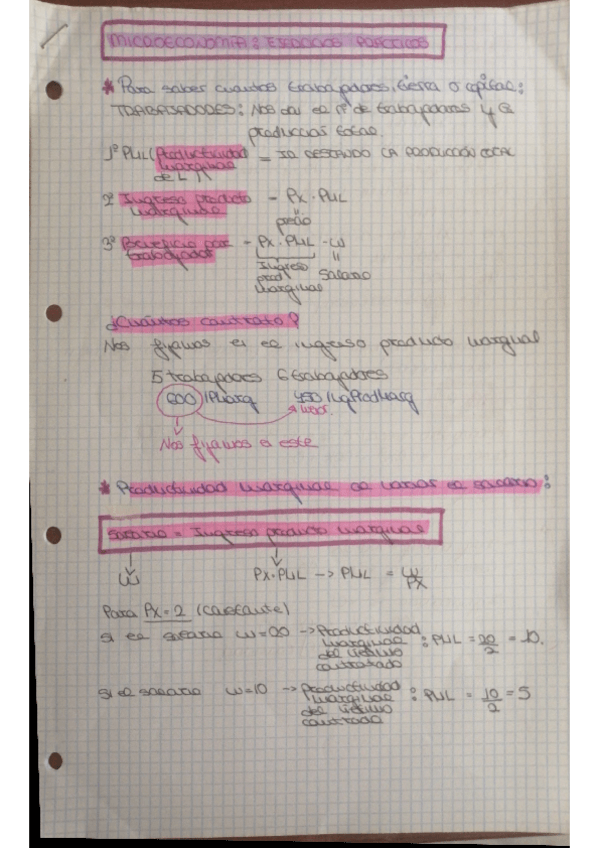 MICROECONOMÍA: EJERCICIOS PRÁCTICOS
* Para saber cuántos trabajadores, tierra o capital:
TRABAJADORES: Nos da el nº de trabajadores y la
producción total.
1º PML (Productividad marginal de L) = IR RESTANDO LA PRODUCCIÓN TOTAL
2º Ingreso producto marginal = Px · PML
precio
3º Beneficio por trabajador = Px · PML - w
Ingreso prod marginal
salario
¿Cuántos contrato?
Nos fijamos en el ingreso producto marginal
5 trabajadores 6 trabajadores
600 IPMarg 450 IngProdMarg
Nos fijamos a este
* Productividad marginal al variar el salario:
Salario = Ingreso producto marginal
w Px·PML -> PML = w/Px
Para Px = 2 (constante)
si el salario w=20 -> Productividad marginal del último contratado : PML = 20/2 = 10.
si el salario w=10 -> Productividad marginal del último contratado : PML = 10/2 = 5